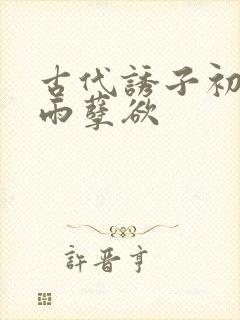 古代誘子初
雨孽欲
許晋亨